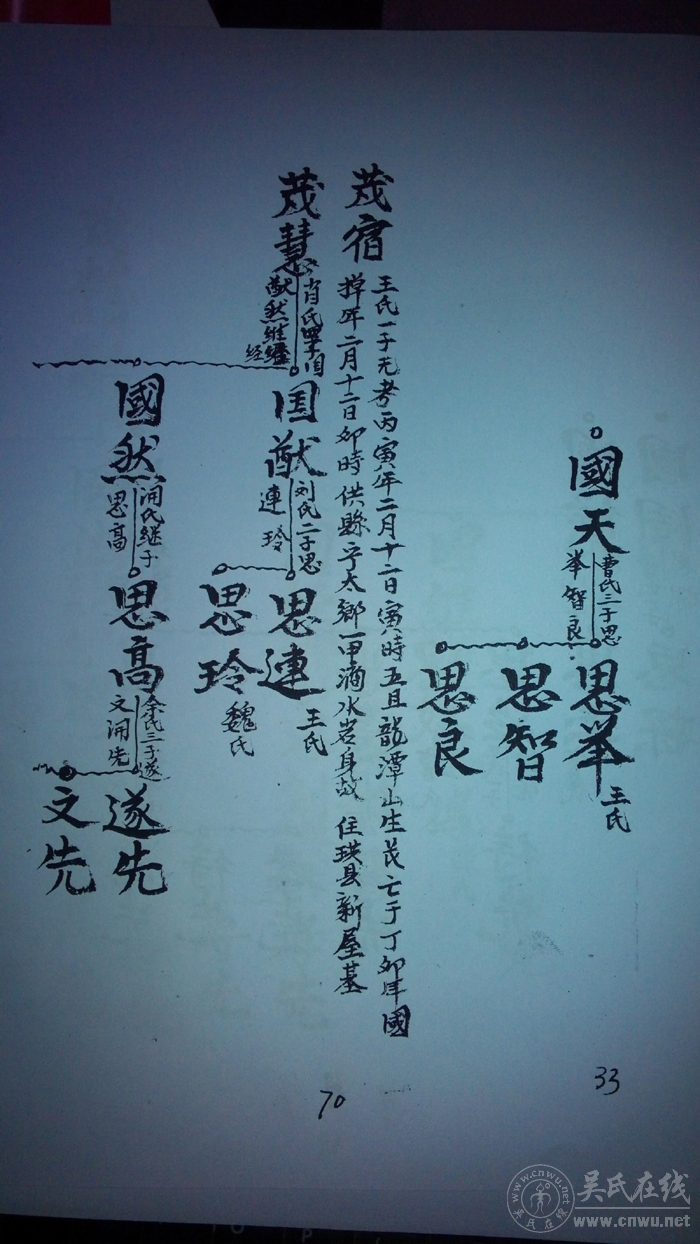 國天
曹氏三子思
举智良
思举
王氏
思智
思良
茂宿
王氏一子无考丙寅年二月十二日寅時五旦龍潭山生民亡于丁卯年國
掉年二月十二日卯時供縣宁太鄉一甲滴水岩身故 住珙县新屋基
茂慧
肖氏四子国
猷然维继
经
国猷
刘氏二子思
連玲
思連
王氏
思玲
魏氏
國然
闻氏继子
思高
思高
余氏三子遂
文開先
遂先
文先
33
70
吴氏在线
www.cnwu.net